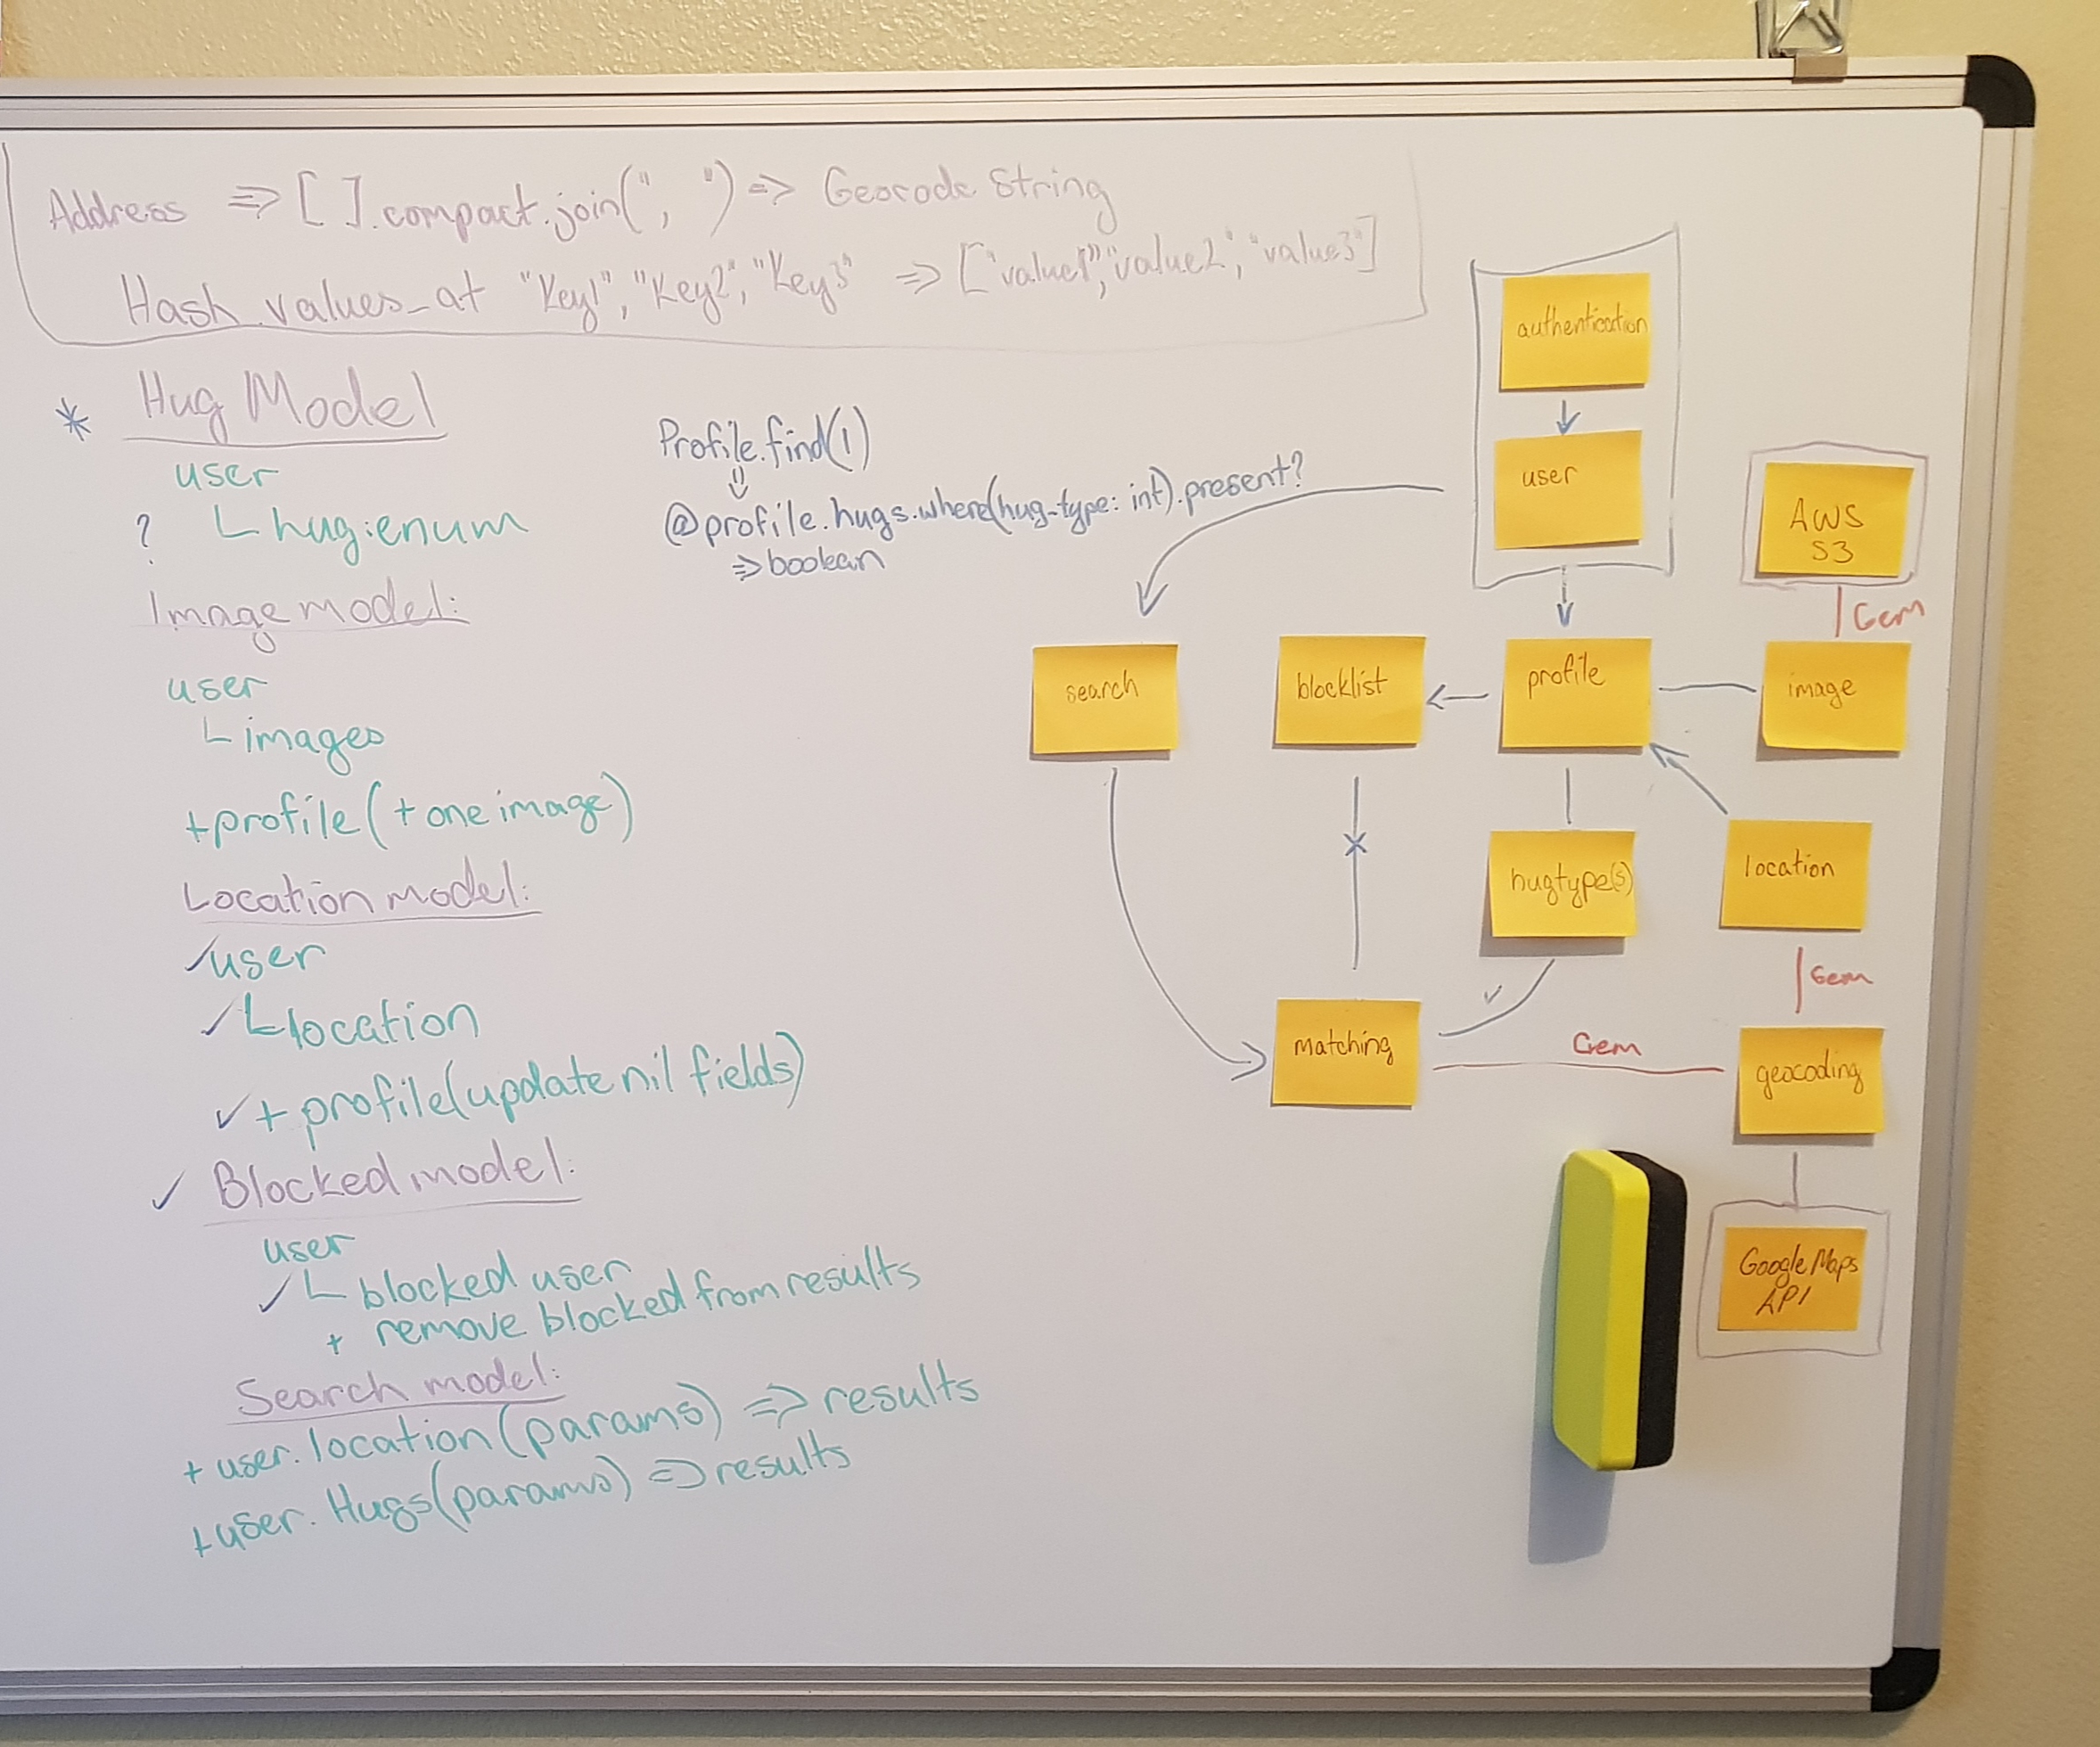 Address => [ ].compact.join(", ") => Geocode String
Hash.values_at "Key1", "Key2", "Key3" => ["value1", "value2", "value3"]
* Hug Model
user
? └ hug:enum
Image model:
user
└ images
+profile (+ one image)
Location model:
✓user
✓└ location
✓ + profile(update nil fields)
✓ Blocked model:
user
✓└ blocked user
+ remove blocked from results
Search model:
+ user.location(params) => results
+ user.Hugs(params) => results
Profile.find(1)
@profile.hugs.where(hug-type: int).present?
=> boolean
authentication
user
AWS
S3
Gem
search
blocklist
profile
image
hugtype(s)
location
Gem
matching
✓
Gem
geocoding
Google Maps
API